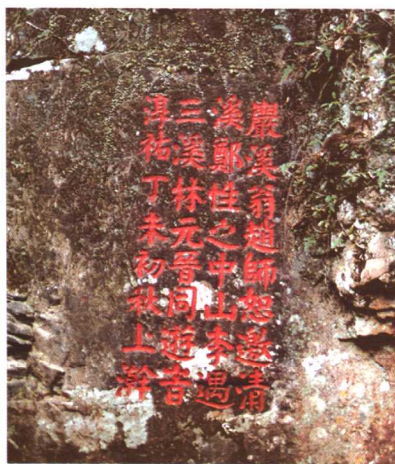 巖溪翁趙師恕邀清
溪鄭性之中山李遇
三溪林元晉同遊旹
淳祐丁未初秋上澣